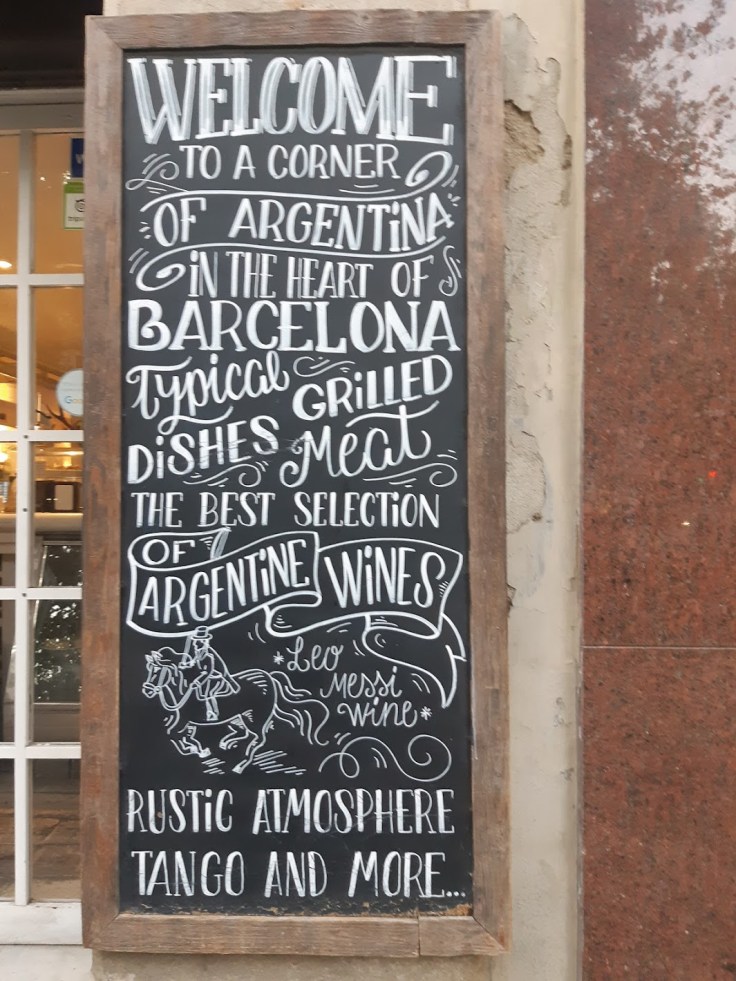 WELCOME
TO A CORNER
OF ARGENTINA
IN THE HEART OF
BARCELONA
Typical GRILLED
DISHES Meat
THE BEST SELECTION
OF
ARGENTINE WINES
*Leo
Messi
wine*
RUSTIC ATMOSPHERE
TANGO AND MORE...